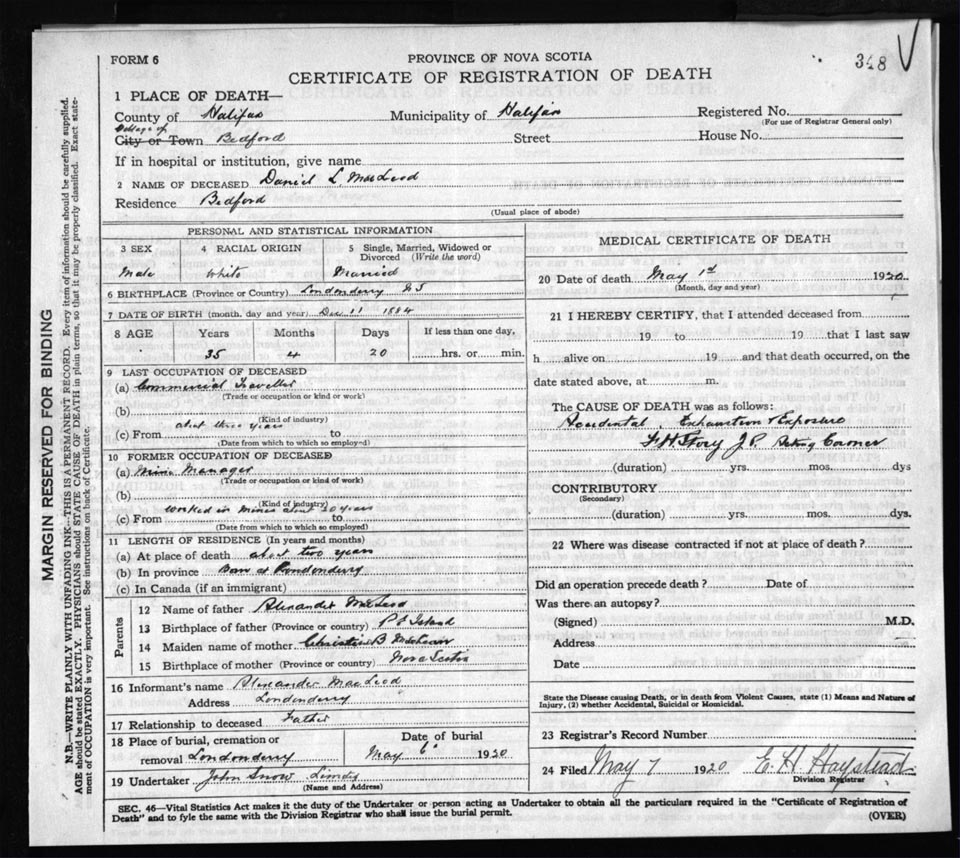 348 V
FORM 6
PROVINCE OF NOVA SCOTIA
CERTIFICATE OF REGISTRATION OF DEATH
1 PLACE OF DEATH—
County of Halifax Municipality of Halifax Registered No.
(For use of Registrar General only)
Village of
City or Town Bedford Street House No.
If in hospital or institution, give name
2 NAME OF DECEASED Daniel L. MacLeod
Residence Bedford
(Usual place of abode)
PERSONAL AND STATISTICAL INFORMATION
3 SEX 4 RACIAL ORIGIN 5 Single, Married, Widowed or Divorced (Write the word)
Male White Married
6 BIRTHPLACE (Province or Country) Londonderry NS
7 DATE OF BIRTH (month, day and year) Dec 11 1884
8 AGE Years Months Days If less than one day,
35 4 20 hrs. or min.
9 LAST OCCUPATION OF DECEASED
(a) Commercial Traveller
(Trade or occupation or kind or work)
(b)
(Kind of industry)
about three years
(c) From to
(Date from which to which so employed)
10 FORMER OCCUPATION OF DECEASED
(a) Mine Manager
(Trade or occupation or kind of work)
(b)
(Kind of industry)
worked in mines about 20 years
(c) From to
(Date from which to which so employed)
11 LENGTH OF RESIDENCE (In years and months)
(a) At place of death about two years
(b) In province Born at Londonderry
(c) In Canada (if an immigrant)
Parents
12 Name of father Alexander MacLeod
13 Birthplace of father (Province or country) P E Island
14 Maiden name of mother Christie B
15 Birthplace of mother (Province or country) Nova Scotia
16 Informant's name Alexander MacLeod
Address Londonderry
17 Relationship to deceased Father
18 Place of burial, cremation or removal Londonderry
Date of burial
May 6 1920
19 Undertaker John Snow Limited
(Name and Address)
MEDICAL CERTIFICATE OF DEATH
20 Date of death May 1st 1920
(Month, day and year)
21 I HEREBY CERTIFY, that I attended deceased from
19 to 19 that I last saw
h alive on 19 and that death occurred, on the
date stated above, at m.
The CAUSE OF DEATH was as follows:
Accidental, Exhaustion & Exposure
F H Story J P. Acting Coroner
(duration) yrs. mos. dys
CONTRIBUTORY
(Secondary)
(duration) yrs. mos. dys.
22 Where was disease contracted if not at place of death?
Did an operation precede death? Date of
Was there an autopsy?
(Signed) M.D.
Address
Date
State the Disease causing Death, or in death from Violent Causes, state (1) Means and Nature of
Injury, (2) whether Accidental, Suicidal or Homicidal.
23 Registrar's Record Number
24 Filed May 7 1920 E. H. Haystead
Division Registrar
SEC. 46—Vital Statistics Act makes it the duty of the Undertaker or person acting as Undertaker to obtain all the particulars required in the "Certificate of Registration of
Death" and to fyle the same with the Division Registrar who shall issue the burial permit. (OVER)
MARGIN RESERVED FOR BINDING
N.B.—WRITE PLAINLY WITH UNFADING INK—THIS IS A PERMANENT RECORD. Every item of information should be carefully supplied.
AGE should be stated EXACTLY. PHYSICIANS should STATE CAUSE OF DEATH in plain terms, so that it may be properly classified. Exact statement of OCCUPATION is very important. See instructions on back of Certificate.